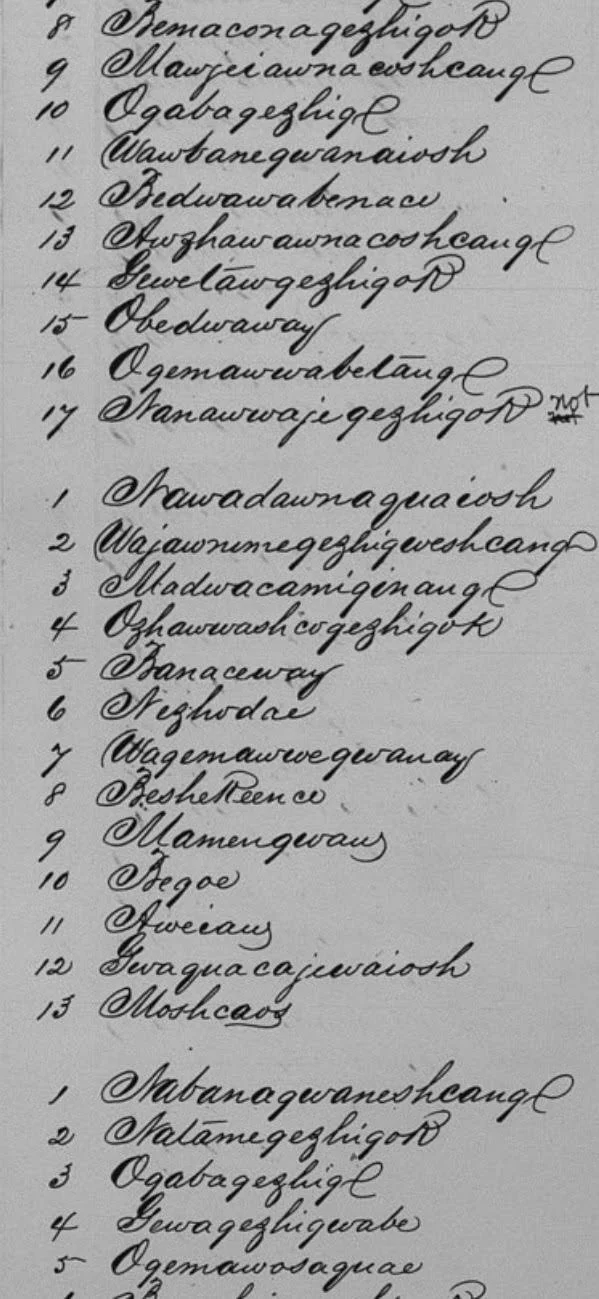 8 BemaconagezhigoK
9 Mawjeiawnacoshcaung
10 Ogabagezhig
11 Wawbanegwanaiosh
12 Bedwawabenace
13 Awzhawawnacoshcaung
14 GewetāwgezhigoK
15 Obedwaway
16 Ogemawwabetāung
17 NanawwajegezhigoK not
1 Nawadawnaguaiosh
2 Wajawnimegezhigweshcang
3 Madwacamiginaung
4 Ozhawwashcogezhigok
5 Banaceway
6 Nezhodae
7 Wagemawwegwanay
8 BesheKeence
9 Mamengwaus
10 Begoe
11 Aweiaus
12 Gwaquacajewaiosh
13 Moshcaos
1 Nabanagwaneshcaung
2 NatāmegezhigoK
3 Ogabagezhig
4 Gewagezhigwabe
5 Ogemawosaquae